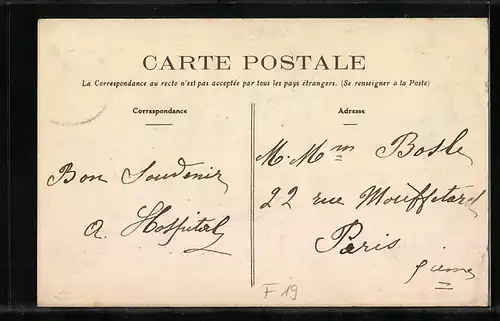 CARTE POSTALE
La Correspondance au recto n'est pas acceptée par tous les pays étrangers. (Se renseigner a la Poste)
Correspondance
Adresse
Bon Souvenir
A. Hospital
M. Mm Bosle
22 rue Mouffetard
Paris
5 ieme
F 19